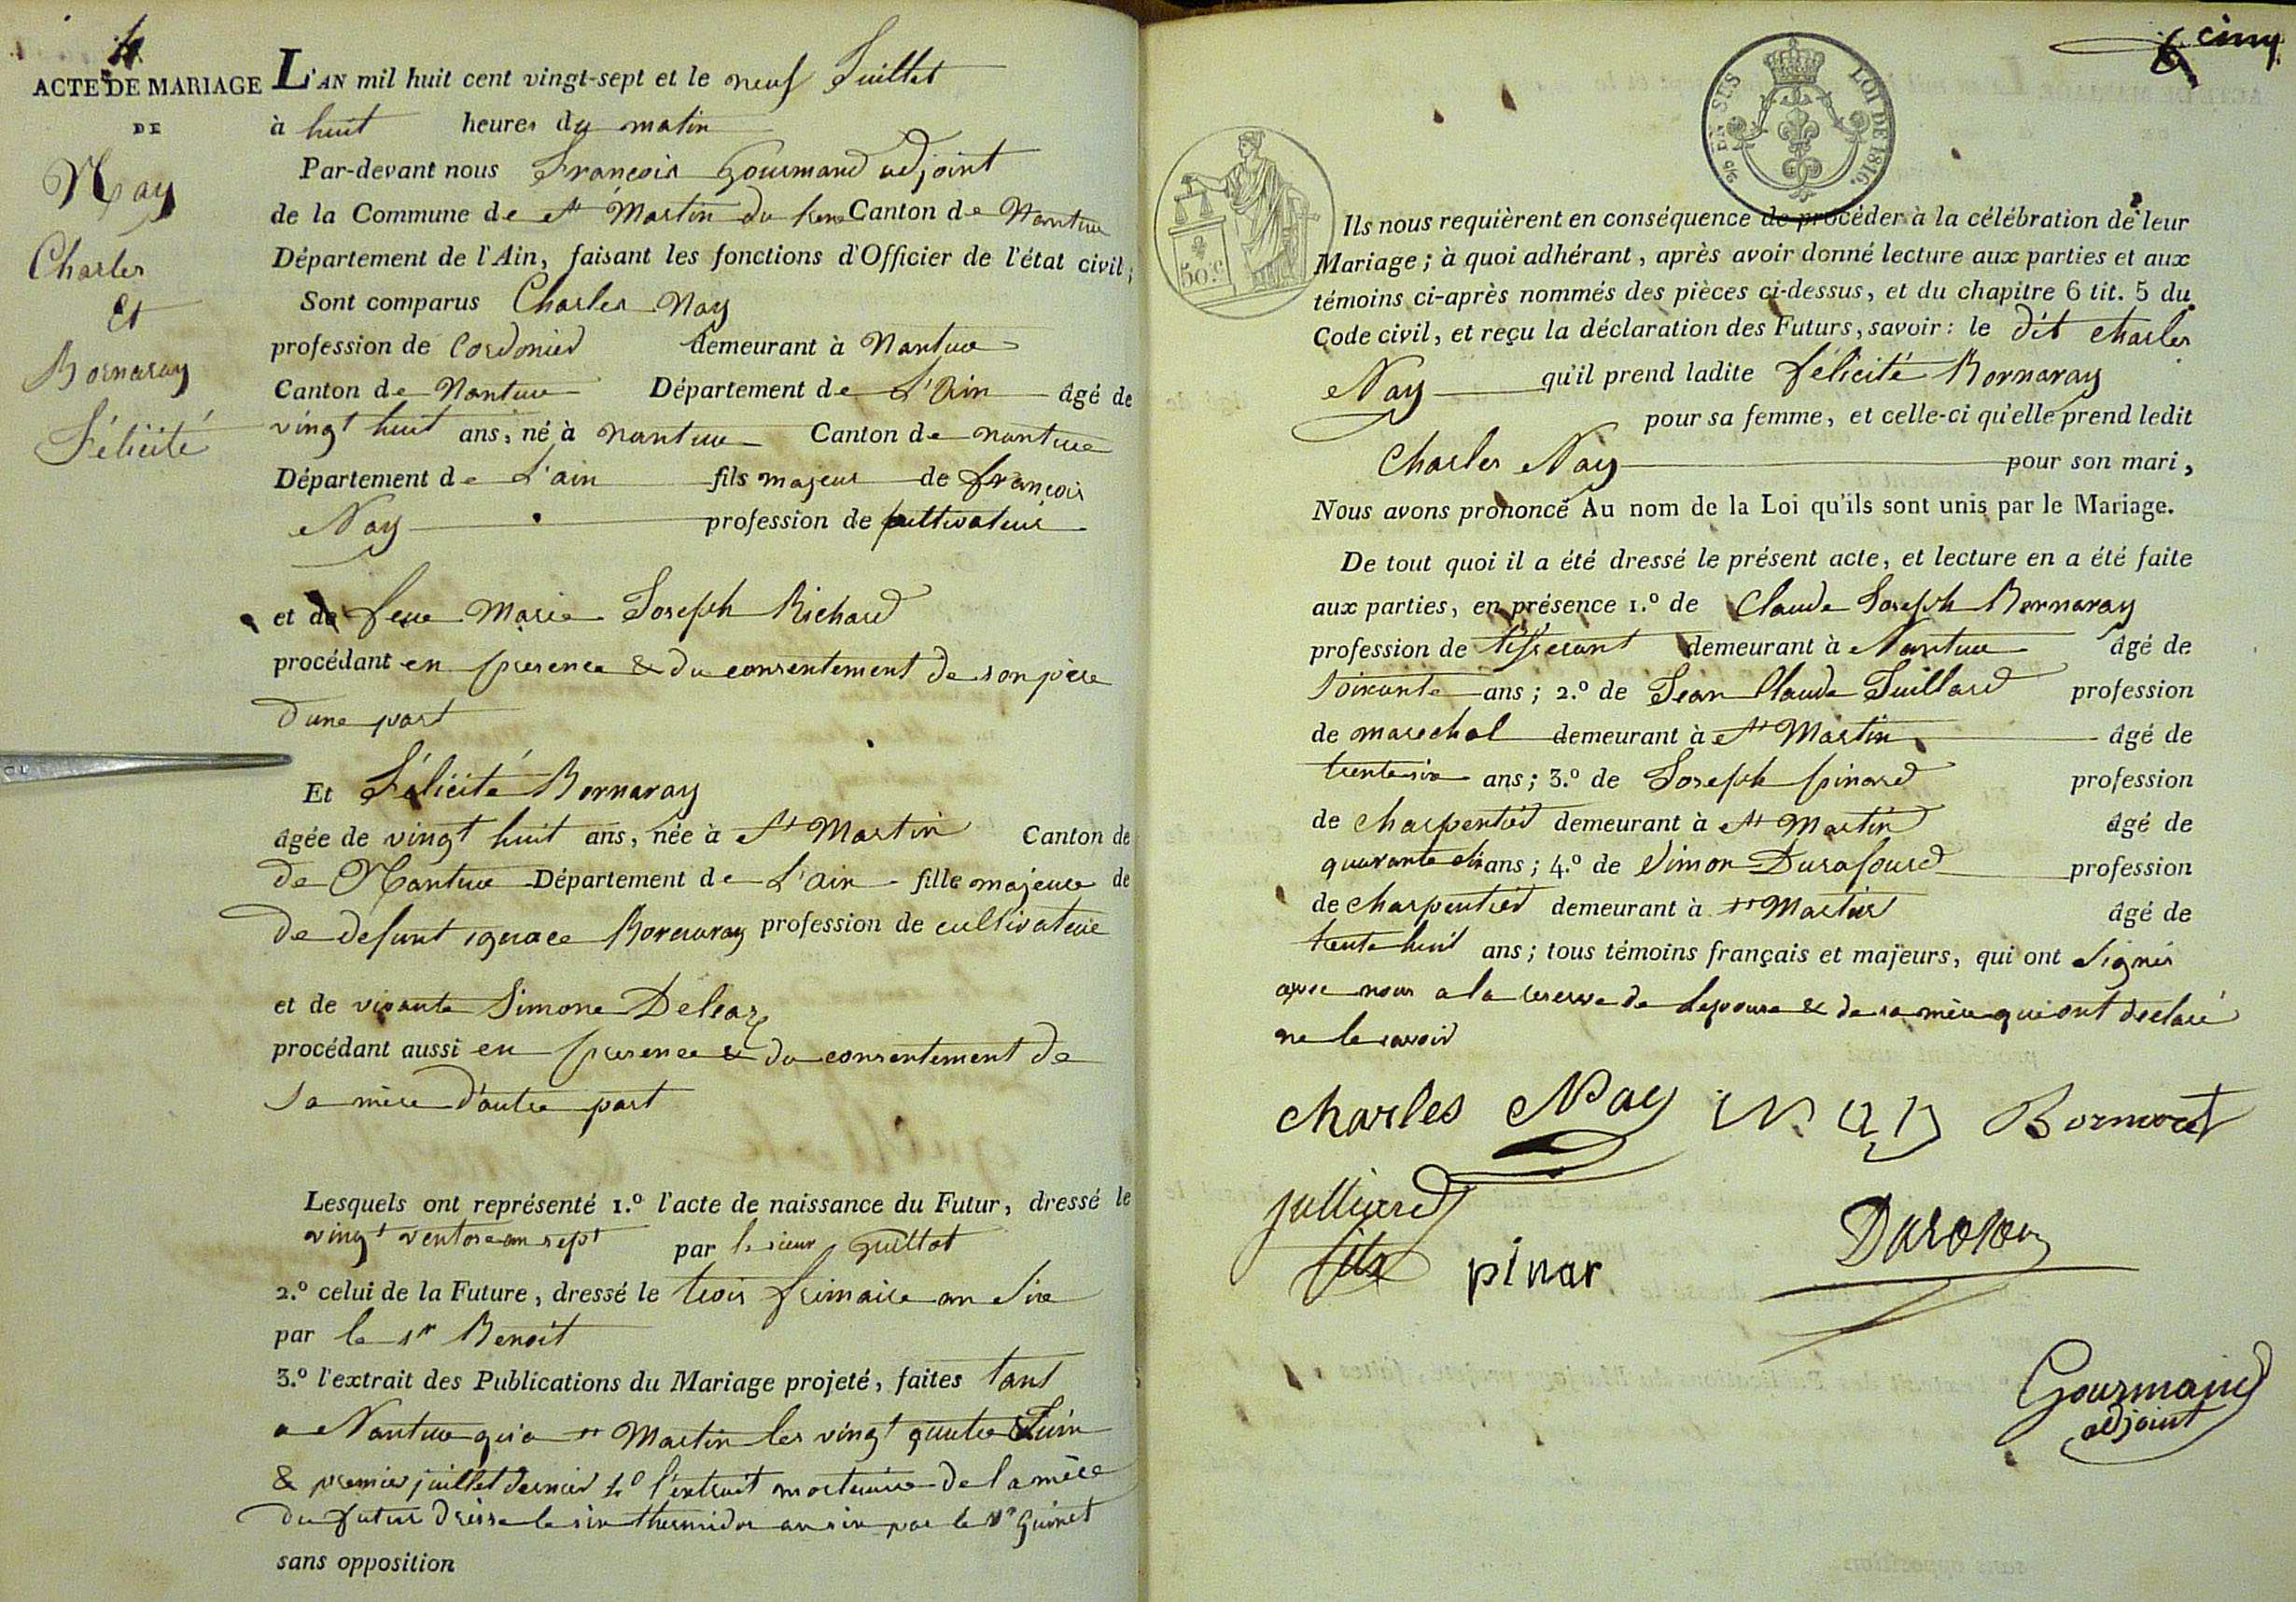 4
ACTE DE MARIAGE
DE
Nay
Charles
et
Bornaray
Félicité
L'AN mil huit cent vingt-sept et le neuf Juillet
à huit heures du matin
Par-devant nous François Gourmand adjoint
de la Commune de St Martin du frene Canton de Nantua
Département de l'Ain, faisant les fonctions d'Officier de l'état civil;
Sont comparus Charles Nay
profession de Cordonier demeurant à Nantua
Canton de Nantua Département de L'Ain âgé de
vingt huit ans, né à nantua Canton de nantua
Département de L'ain fils majeur de françois
Nay profession de cultivateur
et de feue Marie Joseph Richard
procédant en presence & du consentement de son père
d'une part
Et Félicité Bornaray
âgée de vingt huit ans, née à St Martin Canton de
de Nantua Département de L'ain fille majeure de
de defunt ignace Bornaray profession de cultivateur
et de vivante Simone Deleaz
procédant aussi en presence & du consentement de
sa mère d'autre part
Lesquels ont représenté 1.º l'acte de naissance du Futur, dressé le
vingt ventose an sept par le sieur Guittot
2.º celui de la Future, dressé le trois frimaire an Six
par le sr Benoit
3.º l'extrait des Publications du Mariage projeté, faites tant
a Nantua qu'a st Martin les vingt quatre Juin
& premier juillet dernier 4º l'extrait mortuaire de la mère
du futur dressé le six thermidor an six par le sr Guinet
sans opposition
cinq
6
DE SES
LOI DE 1816.
50.c
Ils nous requièrent en conséquence de procéder à la célébration de leur
Mariage; à quoi adhérant, après avoir donné lecture aux parties et aux
témoins ci-après nommés des pièces ci-dessus, et du chapitre 6 tit. 5 du
Code civil, et reçu la déclaration des Futurs, savoir: le dit charles
Nay qu'il prend ladite félicité Bornaray
pour sa femme, et celle-ci qu'elle prend ledit
Charles Nay pour son mari,
Nous avons prononcé Au nom de la Loi qu'ils sont unis par le Mariage.
De tout quoi il a été dressé le présent acte, et lecture en a été faite
aux parties, en présence 1.º de Claude Joseph Bornaray
profession de tisserant demeurant à Nantua âgé de
soixante ans; 2.º de Jean Claude Juillard profession
de marechal demeurant à St Martin âgé de
trente six ans; 3.º de Joseph pinard profession
de charpentier demeurant à St Martin âgé de
quarante six ans; 4.º de Simon Durafourd profession
de charpentier demeurant à st Martin âgé de
trente huit ans; tous témoins français et majeurs, qui ont signés
avec nous a la reserve de lepouse & de sa mère qui ont déclaré
ne le savoir
charles Nay Nay Bornaret
julliard
fils pinar
Gourmand
adjoint